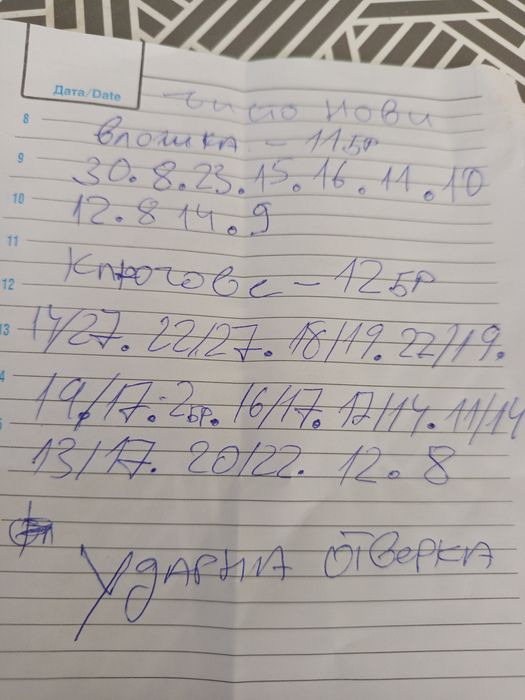 Дата/Date
чисто нови
8
вложка - 11бр
9
30.8.23.15.16.11.10
10
12.8 14.9
11
Ключове - 12бр
12
14/27. 22/27. 18/19. 22/19.
13
19/17.-2бр. 16/17. 17/14. 11/14
4
13/17. 20/22. 12.8
Ударна отверка